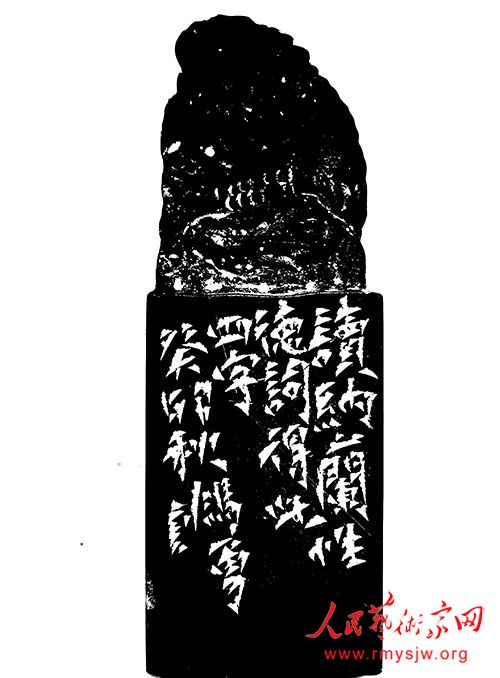 讀納蘭性
德詞得此
四字
癸卯秋鴻
人民藝術家网
www.rmysjw.org